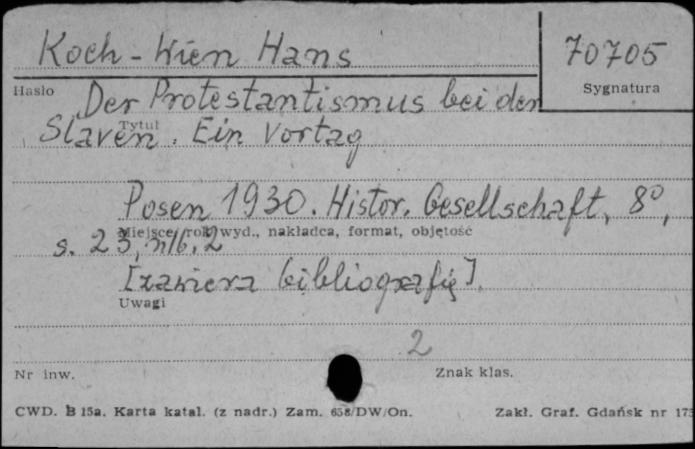 Koch-Wien Hans
70705
Hasło
Sygnatura
Der Protestantismus bei den
Slaven. Ein Vortag
Tytuł
Posen 1930. Histor. Gesellschaft, 8°,
Miejsce, rok wyd., nakładca, format, objętość
s. 23, nlb. 2
[zawiera bibliografię].
Uwagi
2
Nr inw.
Znak klas.
CWD. B 15a. Karta katal. (z nadr.) Zam. 658/DW/On.
Zakł. Graf. Gdańsk nr 173